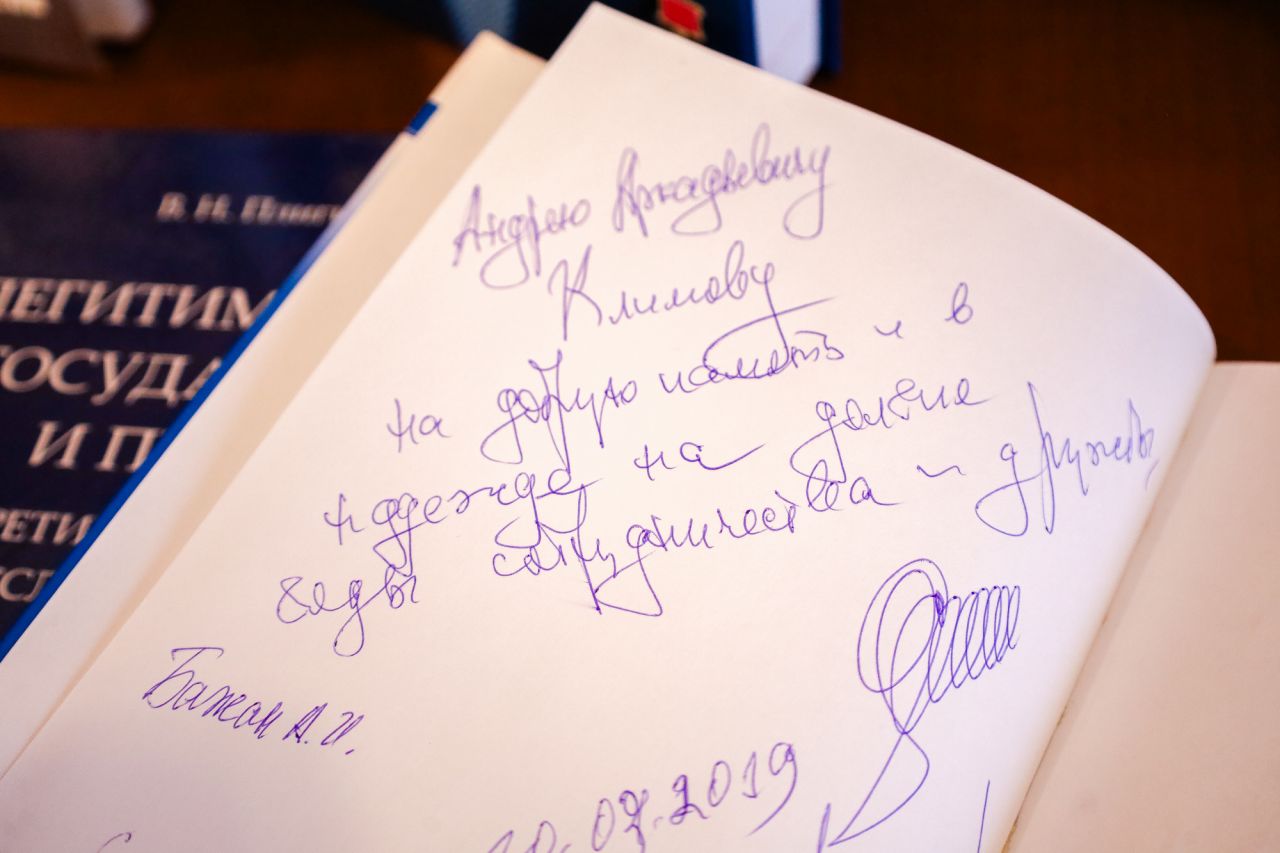 В. Н. Плиг
ЛЕГИТИМ
ГОСУДА
И П
РЕТИ
СЛ
Андрею Аркадьевичу
Климову
на добрую память и в
надежде на долгие
годы сотрудничества и дружбы,
Бажан А.И.
10.07.2019